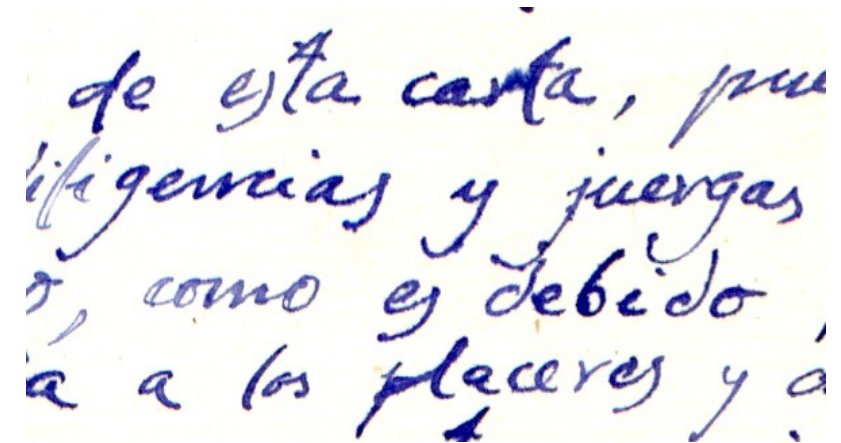 de esta carta, pue
iligencias y juergas
o, como es debido,
a a los placeres y a